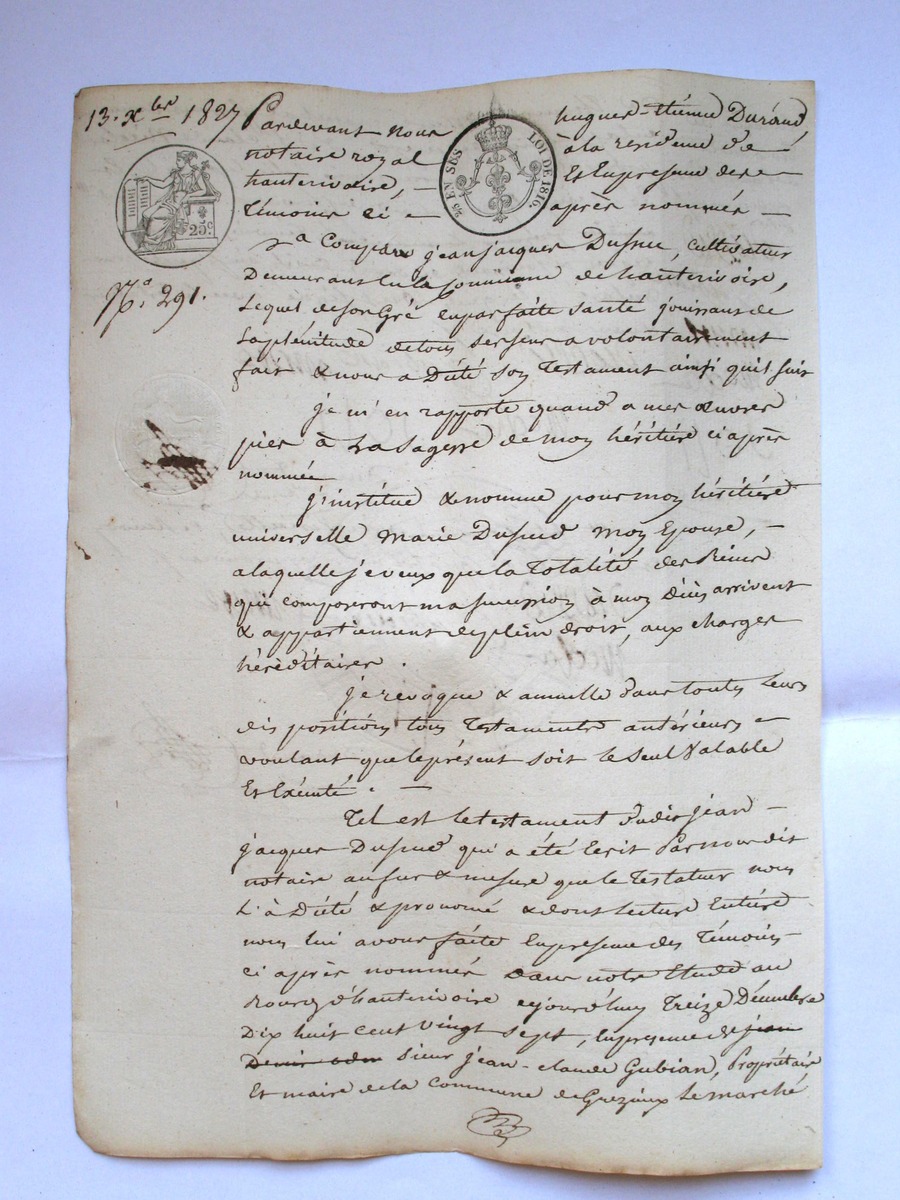 13. Xbre 1827
Pardevant nous hugues-étienne Durand
notaire royal à la residence de
hauterivoire, - Et En presence des
témoins ci - après nommés -
25 EN SUS LOI DE 1816.
25c
a Comparu jean jacques Dupud, cultivateur
Demeurant En la Commune de hauterivoire,
N°. 291.
Lequel de son Gré En parfaite santé jouissant de
la plénitude de tous ses sens a volontairement
fait & nous a Dicté son Testament ainsi qu'il suit
je m'en rapporte quand a mes œuvres
pies à La sagesse de mon héritière ci après
nommée
j'institue & nomme pour mon héritière
universelle Marie Dupud mon Epouse, -
a laquelle je veux que la Totalité des Biens
qui composeront ma succession à mon décès arrivent
& appartiennent de plein droit, aux charges
héréditaires.
je revoque & annulle dans toutes leurs
dispositions tous Testaments antérieurs -
voulant que le présent soit le seul Valable
Et Exécuté. -
Tel est le testament dudit jean -
jacques Dupud qui a été Ecrit Par nous dit
notaire au fur & mesure que le Testateur nous
l'à Dicté & prononcé & dont lecture Entière
nous lui avons faite En presence des Témoins
ci après nommés dans notre Etude au
Bourg d'hauterivoire cejourd'huy Treize Décembre
Dix huit cent vingt sept, En presence de jean
Denis sieur jean-claude Gubian, Propriétaire
Et maire de la Commune de Grezieux Le marché